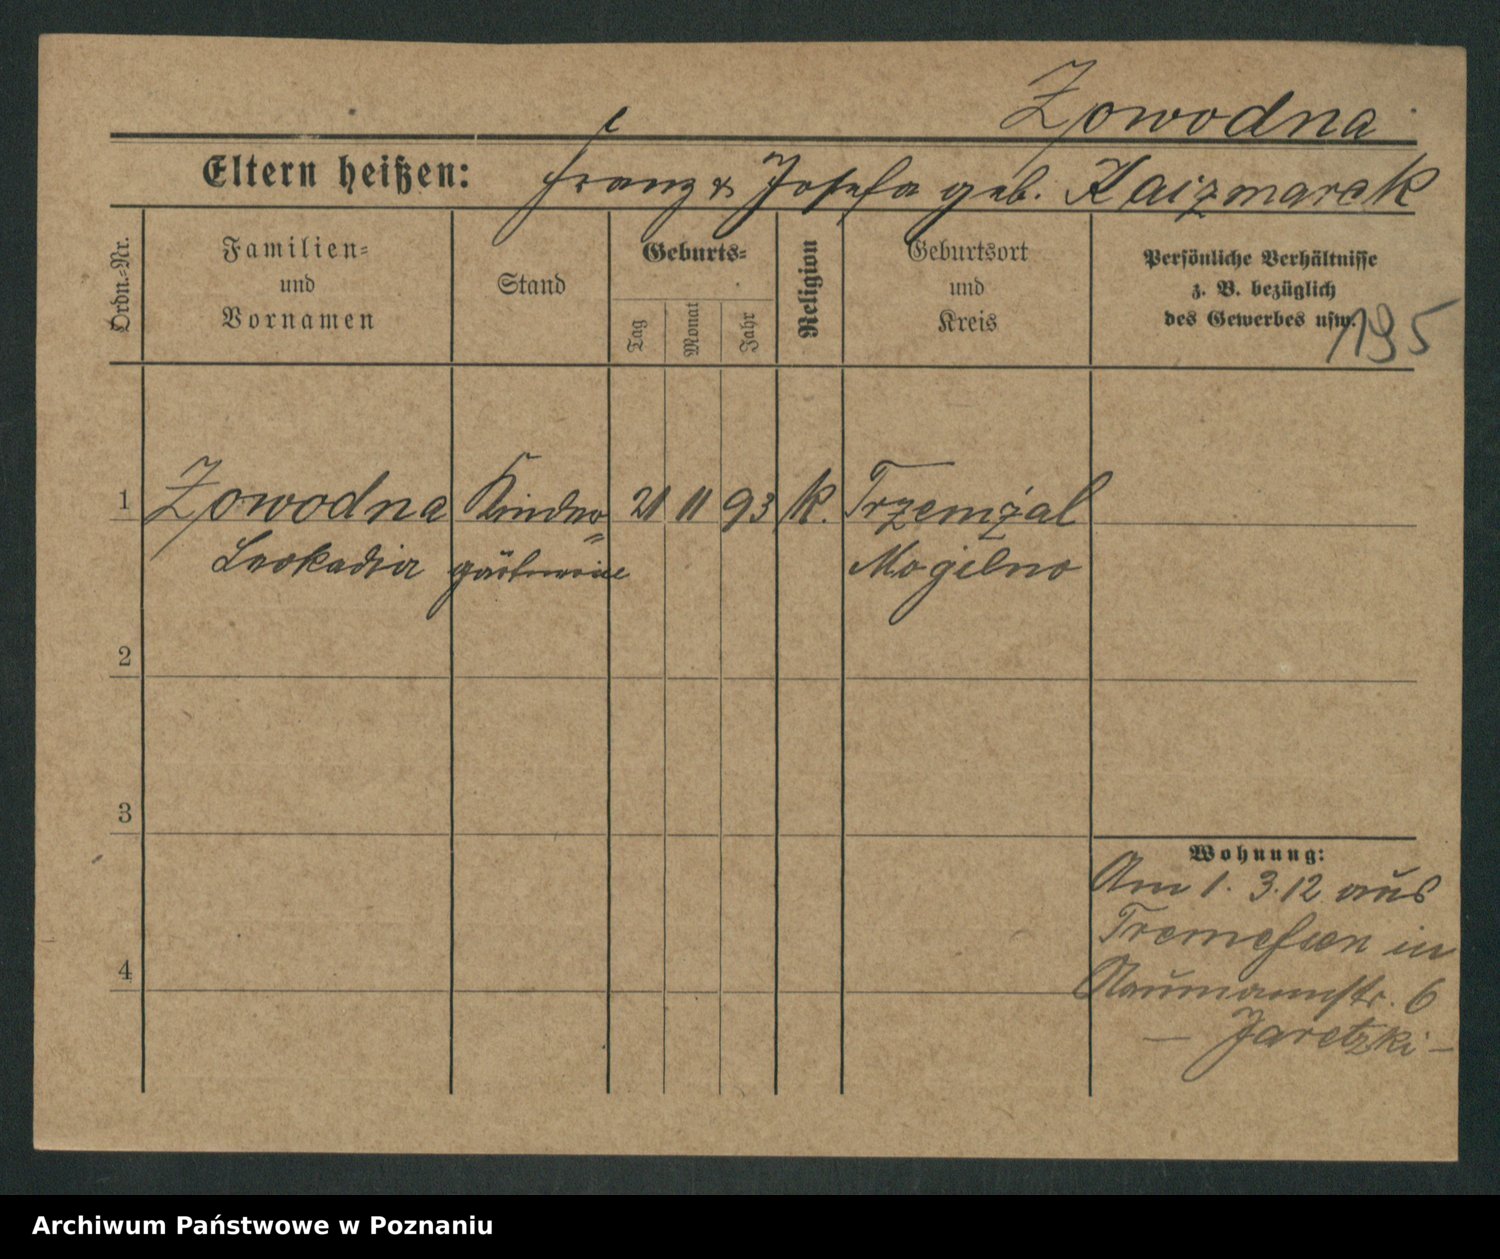 Zowodna
Eltern heißen: Franz & Josefa geb. Kaizmarek
Ordn.-Nr.
Familien-
und
Vornamen
Stand
Geburts-
Tag
Monat
Jahr
Religion
Geburtsort
und
Kreis
Persönliche Verhältnisse
z. B. bezüglich
des Gewerbes usw.
195
1 Zowodna Kinder= 21 11 93 k. Trzemżal
Leokadia gärtnerin Mogilno
2
3
Wohnung:
Am 1. 3. 12 aus
Tremessen in
4
Naumannstr. 6
— Jaretzki —
Archiwum Państwowe w Poznaniu